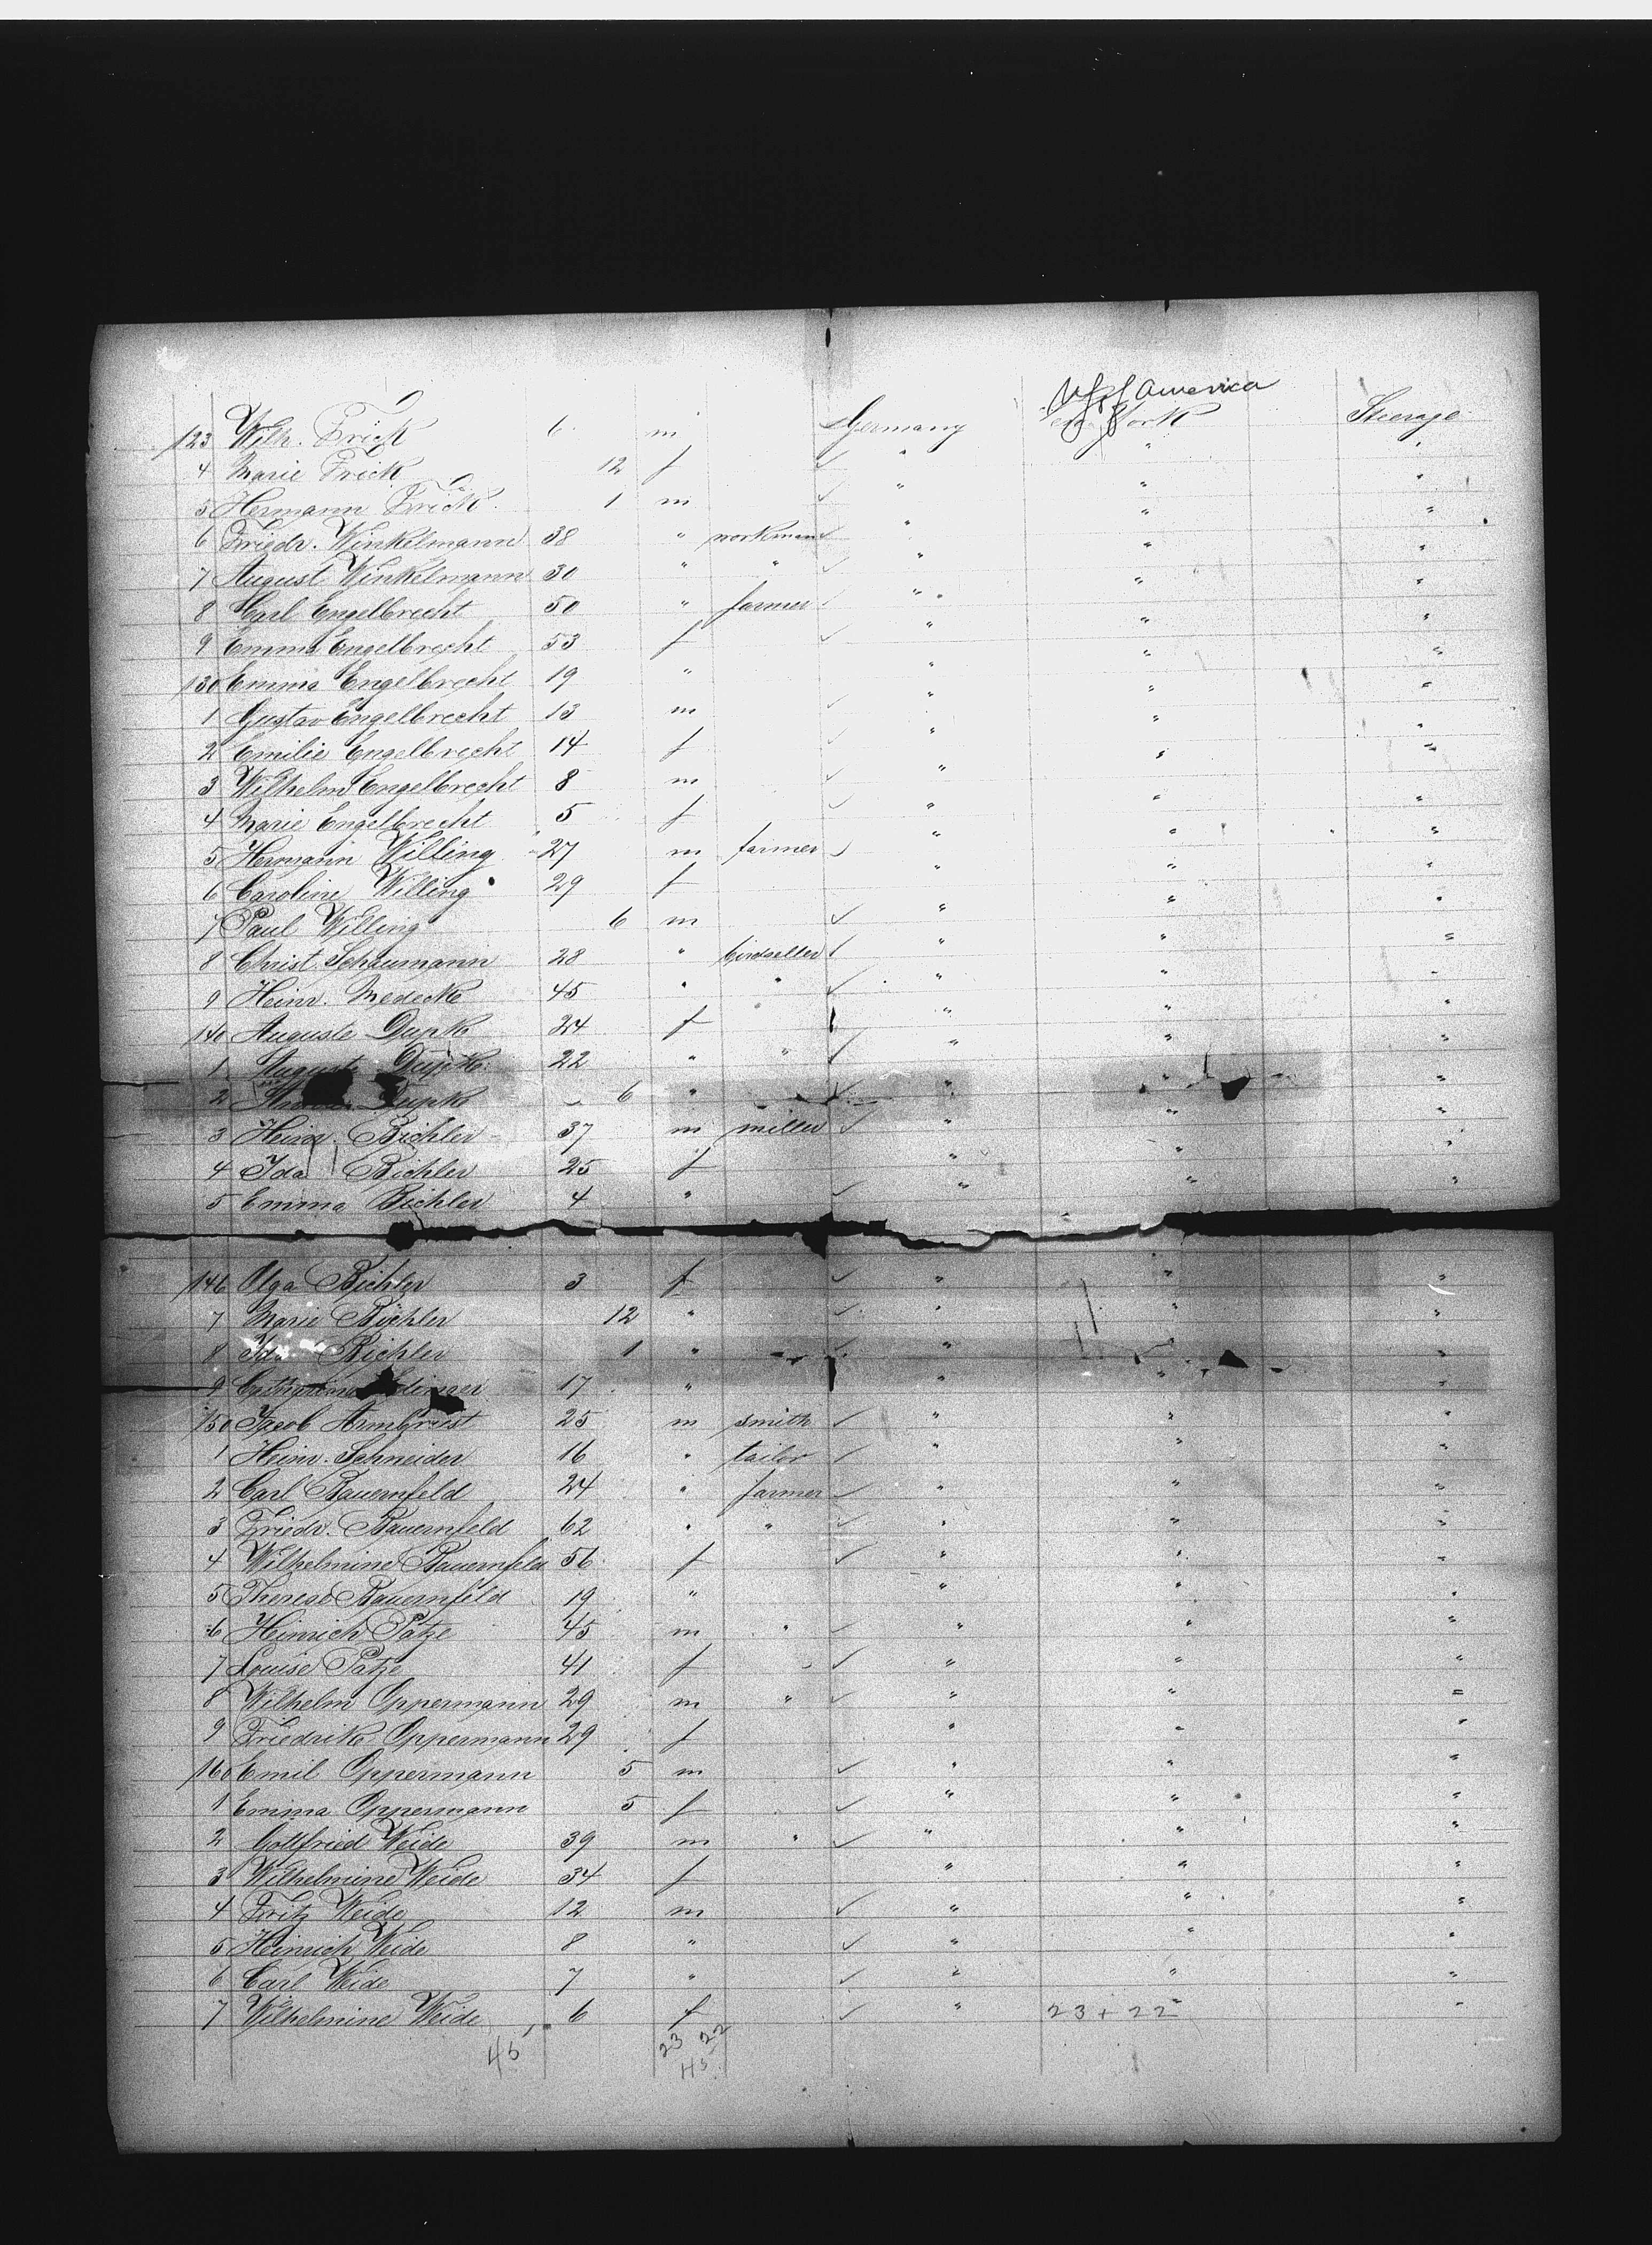 U S of America
123 Wilh. Frick 6 m Germany New York Steerage
4 Marie Frick 12 f " " "
5 Hermann Frick 1 m " " "
6 Friedr. Winkelmann 38 " workman " " "
7 August Winkelmann 30 " " " " "
8 Carl Engelbrecht 50 " farmer " " "
9 Emma Engelbrecht 53 f " " "
130 Emma Engelbrecht 19 " " " "
1 Gustav Engelbrecht 13 m " " "
2 Emilie Engelbrecht 14 f " " "
3 Wilhelm Engelbrecht 8 m " " "
4 Marie Engelbrecht 5 f " " "
5 Hermann Willing 27 m farmer " " "
6 Caroline Willing 29 f " " "
7 Paul Willing 6 m " " "
8 Christ. Schaumann 28 " birdseller " " "
9 Heinr. Medecke 45 " " " " "
140 Auguste Dupk 24 f " " "
1 Auguste Dupk 22 " " " " "
2 Dupk 6 " " " "
3 Heinr. Bichler 37 m miller " " "
4 Ida Bichler 25 f " " "
5 Emma Bichler 4 " " " "
146 Olga Bichler 3 f " " "
7 Marie Bichler 12 " " " "
8 Ida Bichler 1 " " " "
9 17 " " " "
150 Jacob Armbriest 25 m smith " " "
1 Heinr. Schneider 16 " tailor " " "
2 Carl Bauernfeld 24 " farmer " " "
3 Friedr. Bauernfeld 62 " " " " "
4 Wilhelmine Bauernfeld 56 f " " "
5 Therese Bauernfeld 19 " " " "
6 Heinrich Patze 45 m " " " "
7 Louise Patze 41 f " " "
8 Wilhelm Oppermann 29 m " " " "
9 Friedrike Oppermann 29 f " " "
160 Emil Oppermann 5 m " " "
1 Emma Oppermann 5 f " " "
2 Gottfried Weide 39 m " " " "
3 Wilhelmine Weide 34 f " " "
4 Fritz Weide 12 m " " "
5 Heinrich Weide 8 " " " "
6 Carl Weide 7 " " " "
7 Wilhelmine Weide 6 f " 23 + 22 "
45 23 22
45